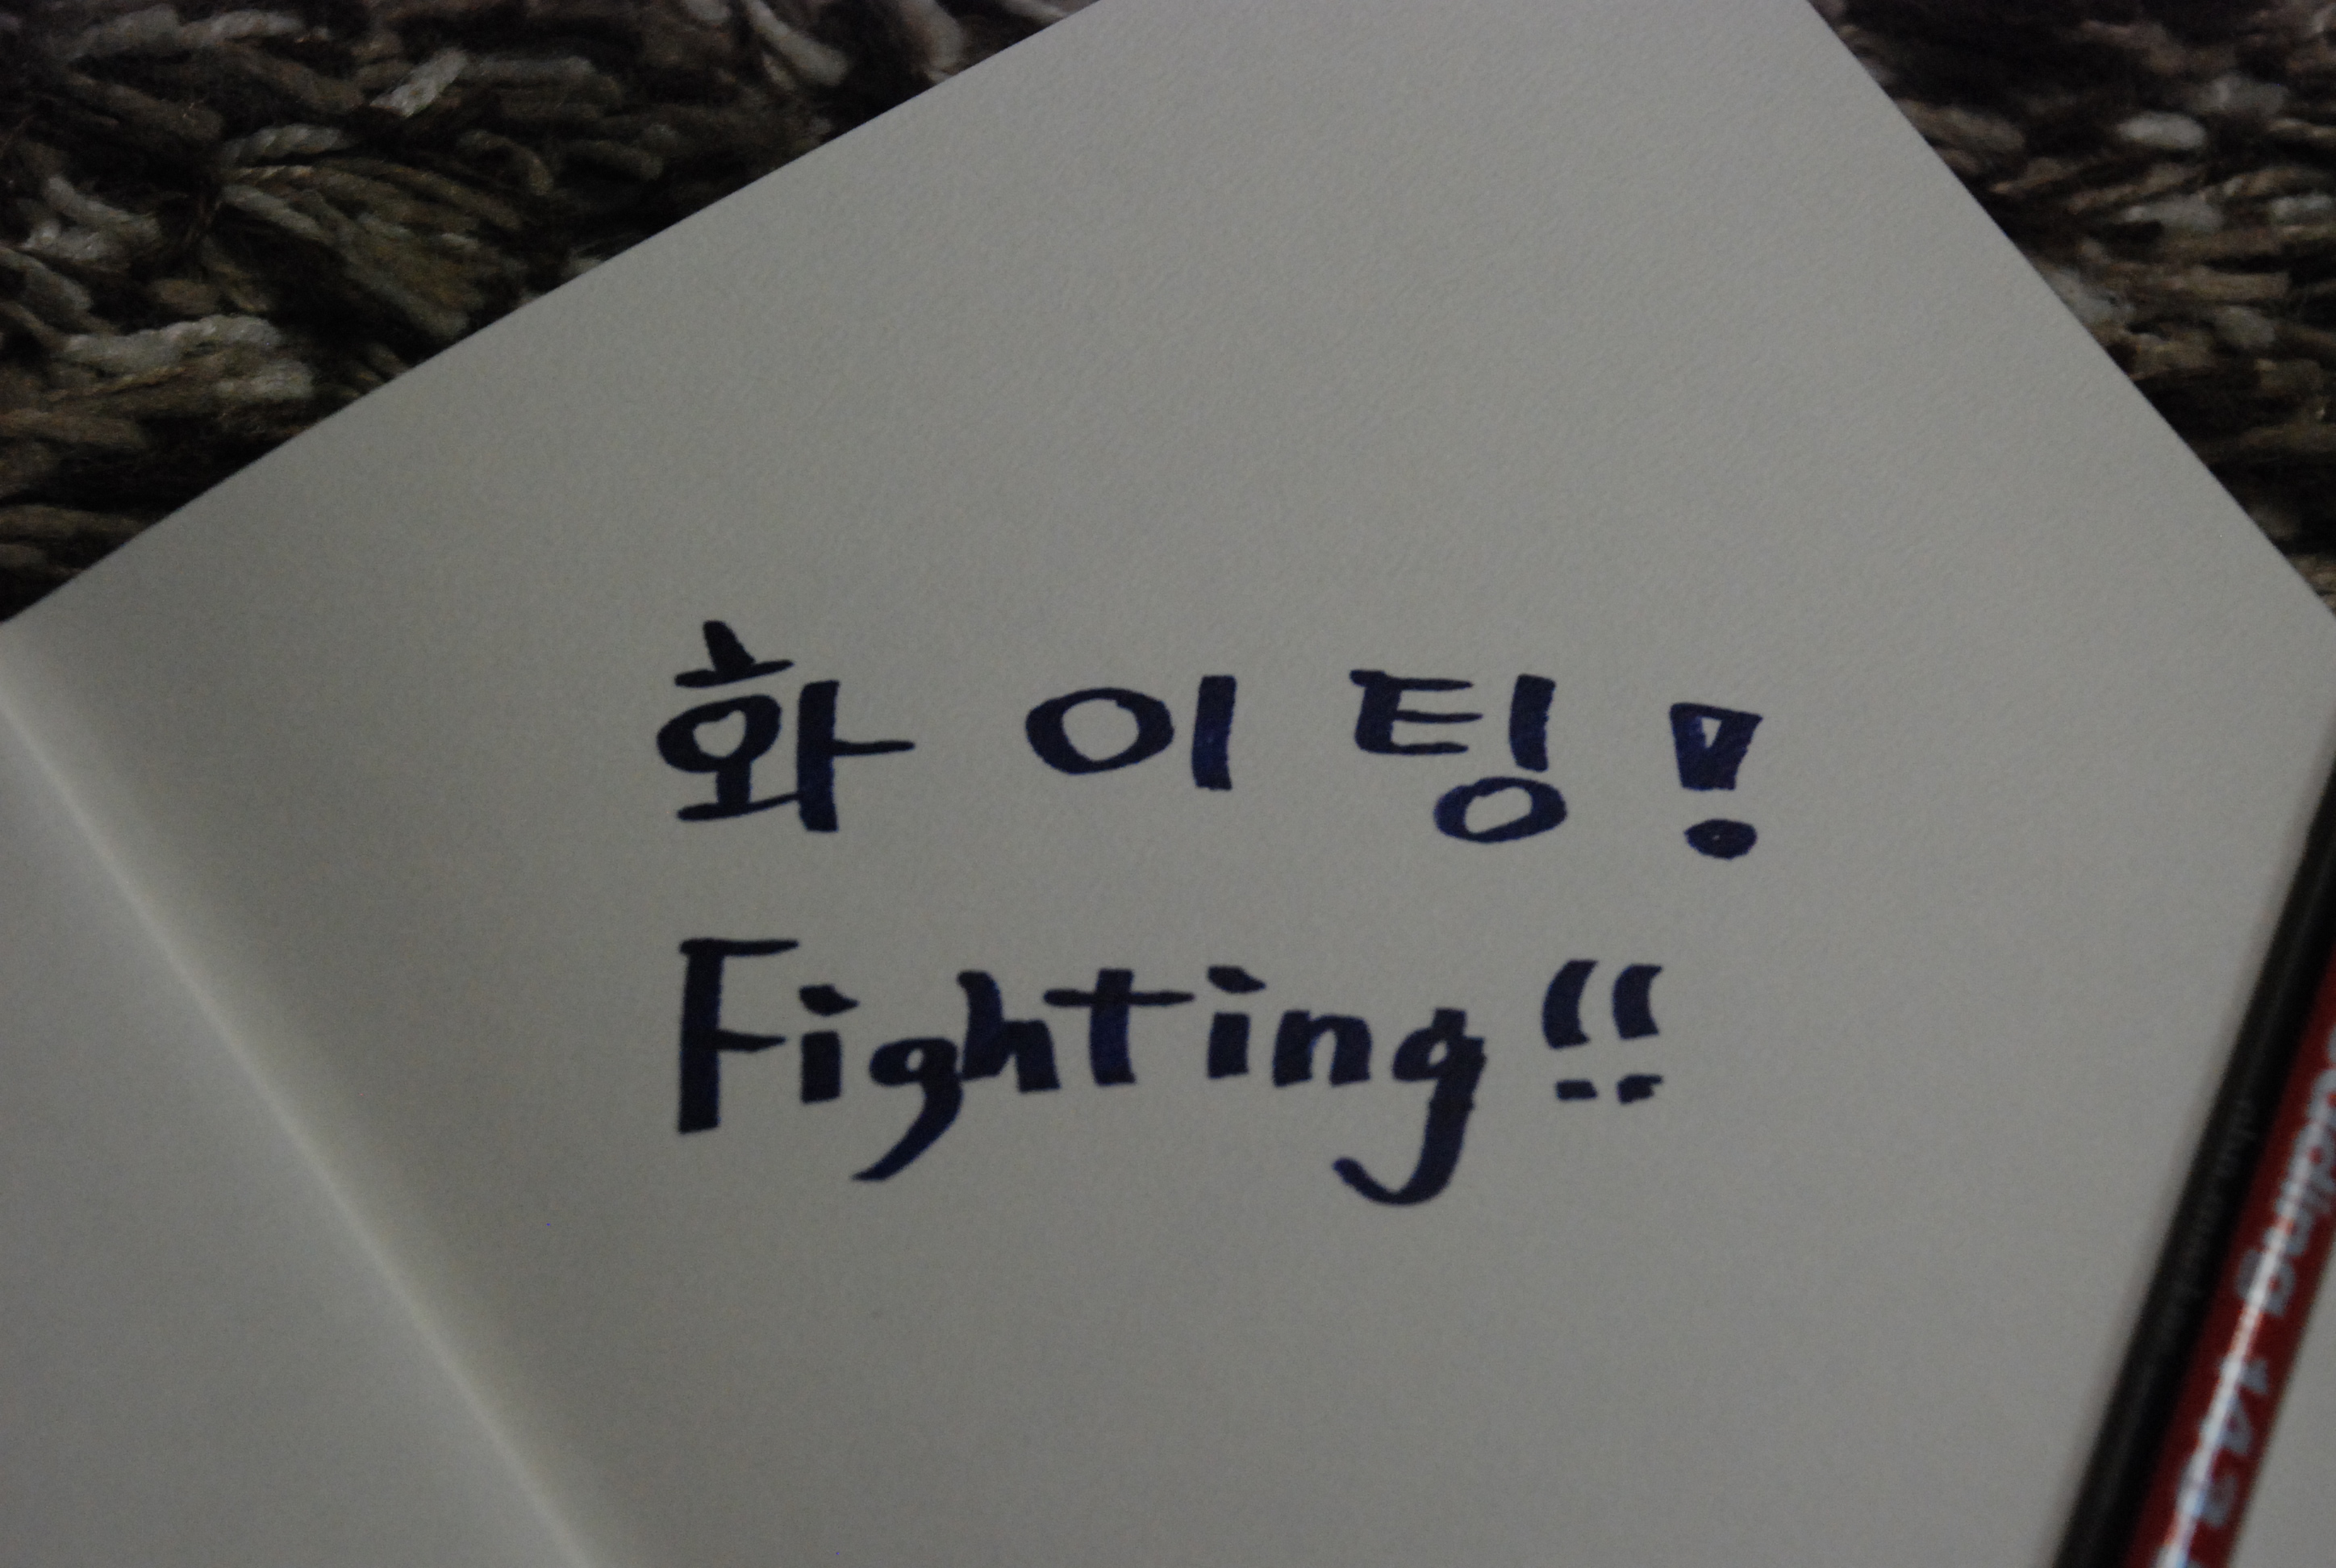 화이팅!
Fighting!!
143